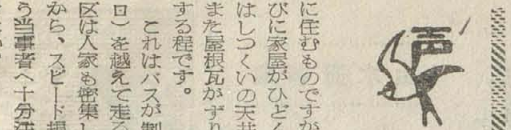 声
に住むものですが
びに家屋がひどく
はしつくいの天井
また屋根瓦がずり
する程です。
これはバスが制
ロ）を越えて走る
区は人家も密集し
から、スピード
う当事者へ十分注